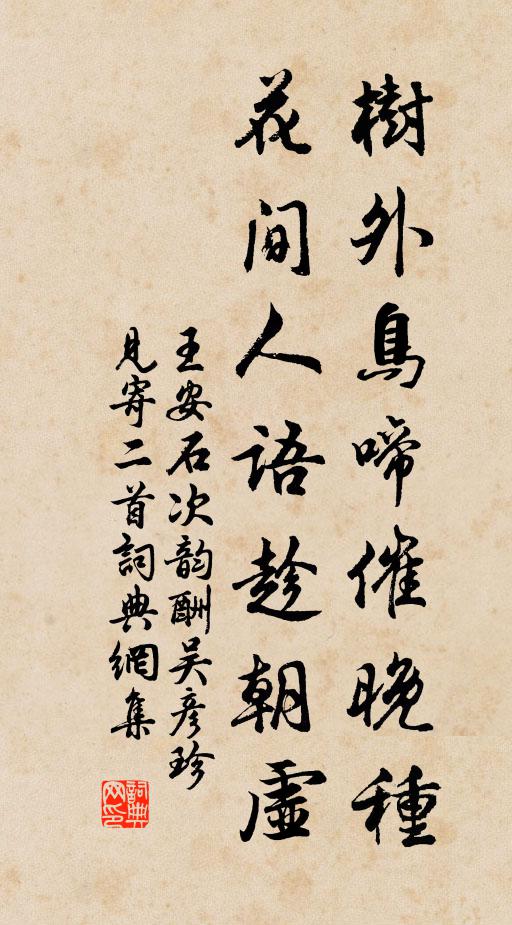 樹外鳥啼催晚種
花間人語趁朝虛
王安石次韵酬吴彦珍
見寄二首詞典網集
詞典网印